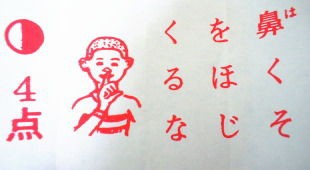 鼻くそ
は
をほじ
くるな
4点